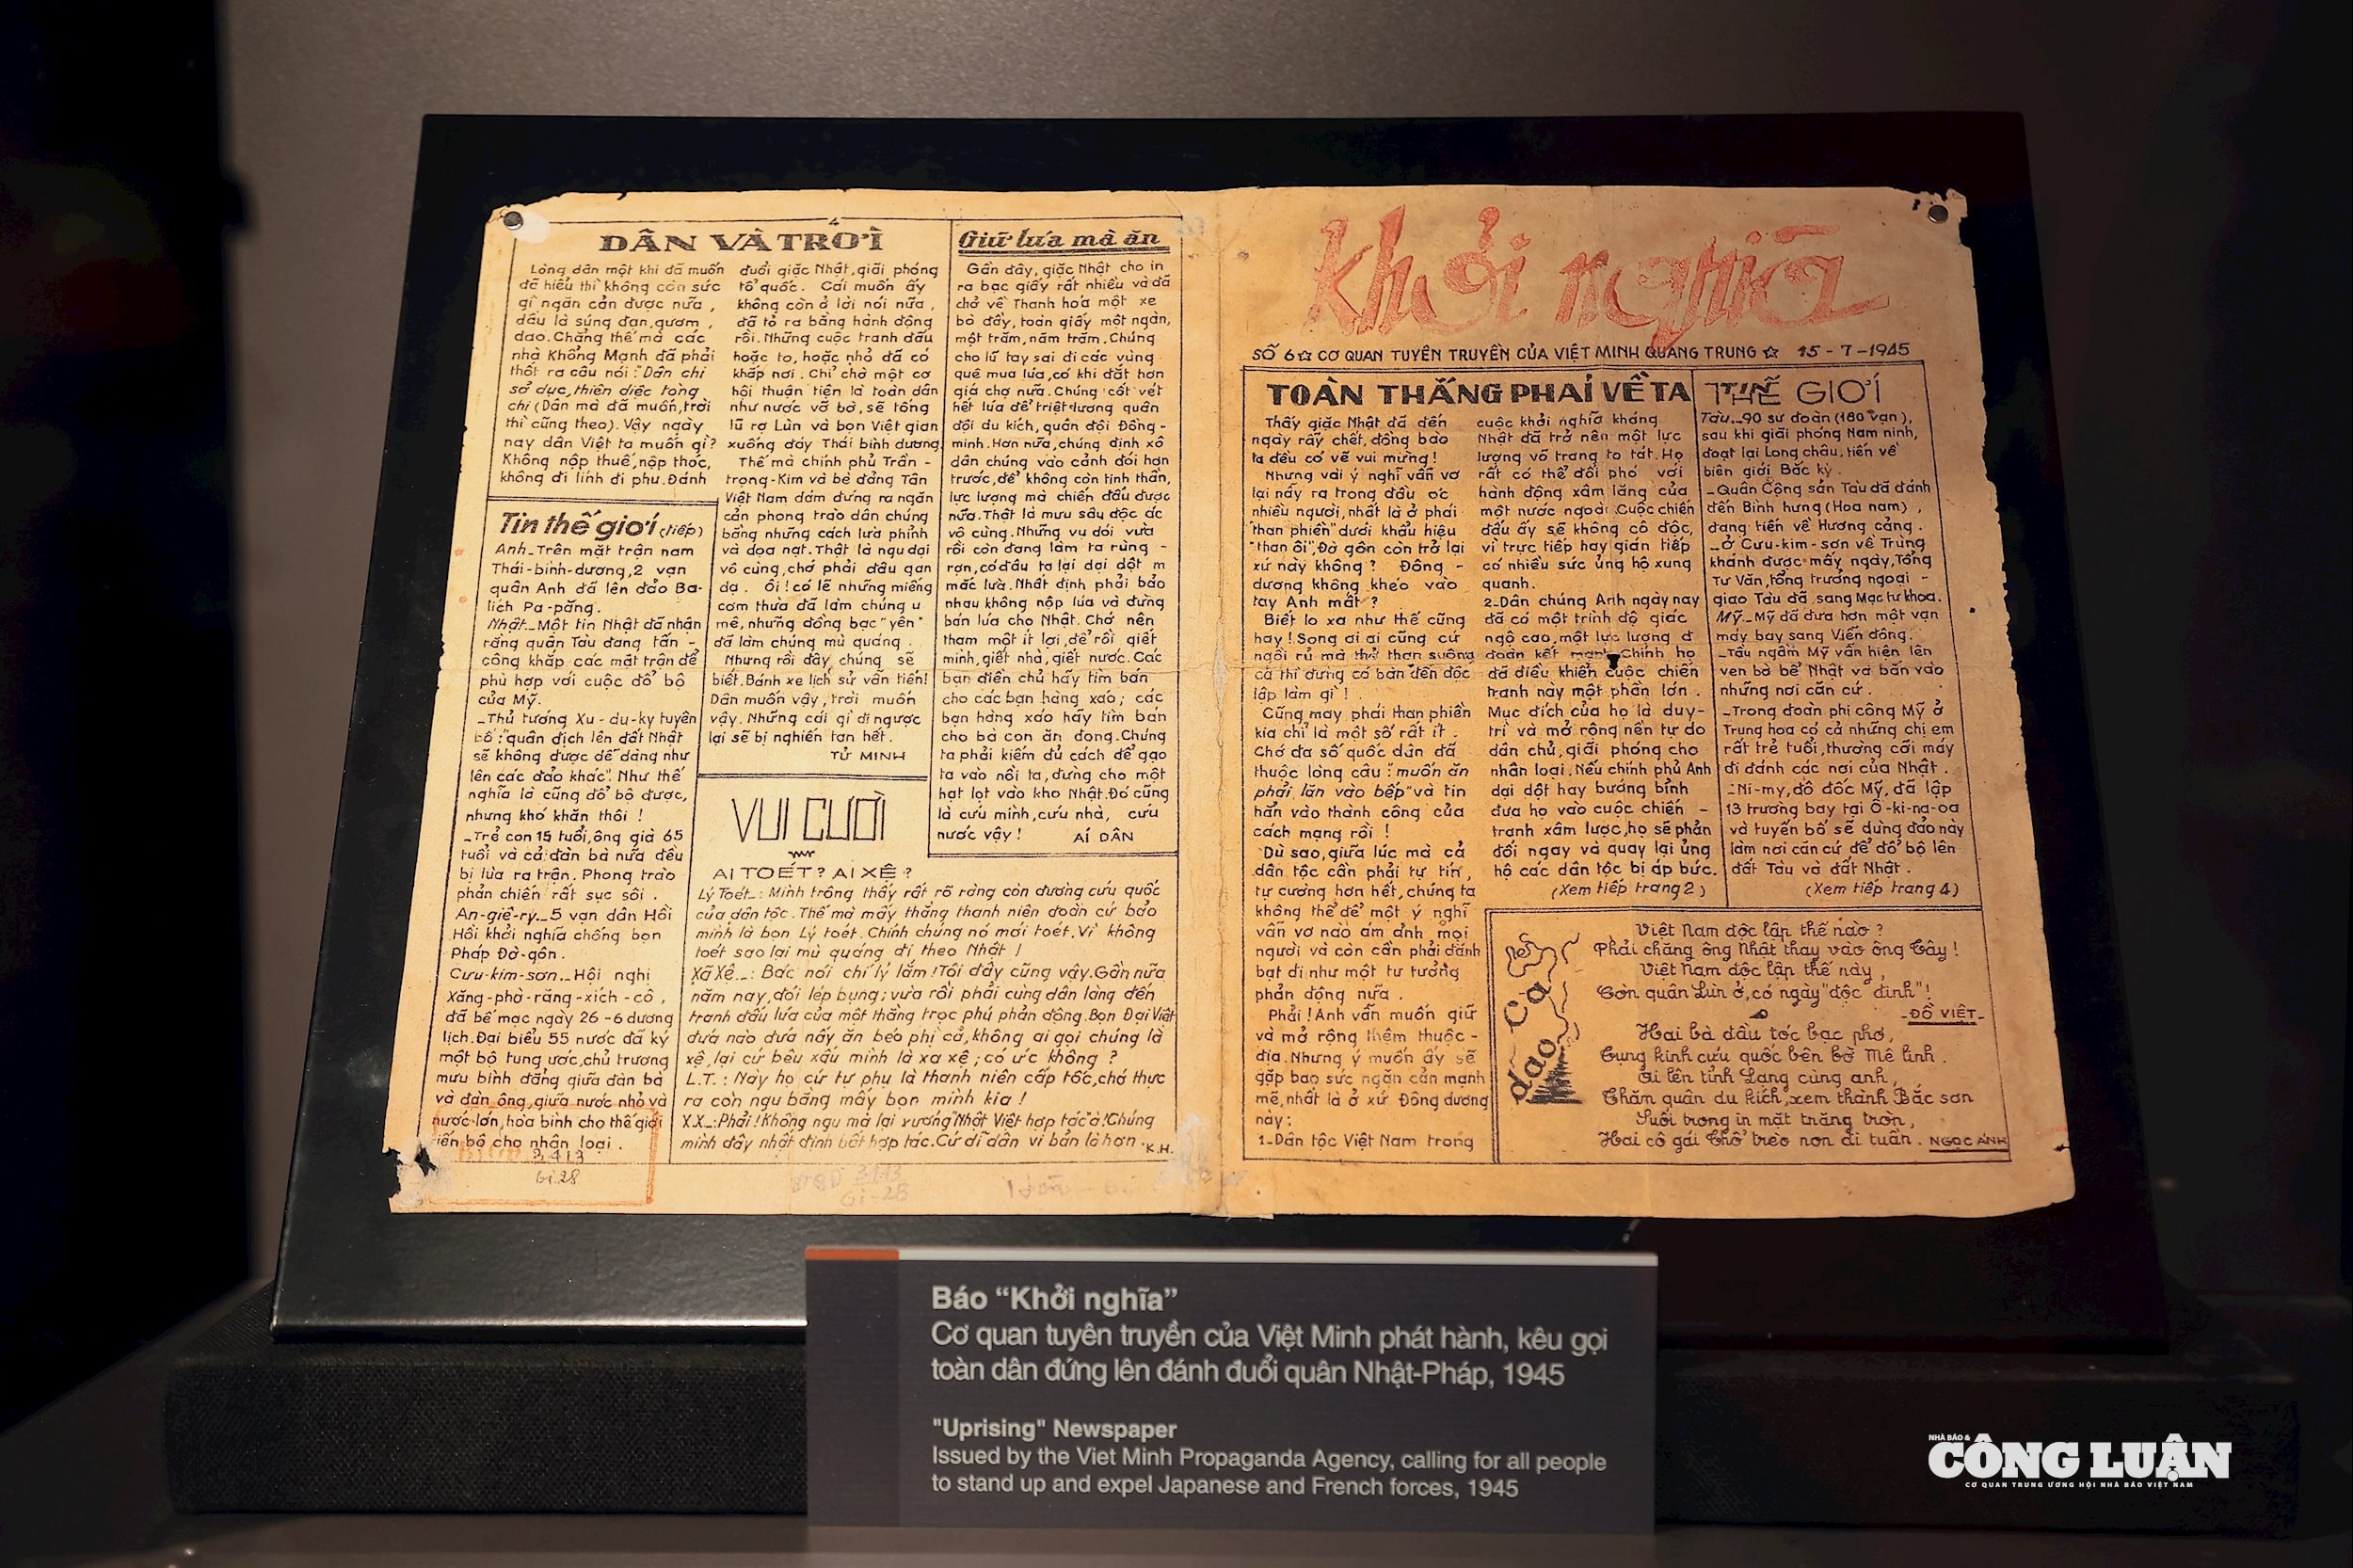 4
DÂN VÀ TRỜI
Lòng dân một khi đã muốn
đã hiểu thì không còn sức
gì ngăn cản được nữa,
dầu là súng đạn, gươm,
dao. Chẳng thế mà các
nhà Khổng Mạnh đã phải
thốt ra câu nói: "Dân chi
sở dục, thiên diệc tòng
chi (Dân mà đã muốn, trời
thì cũng theo). Vậy ngày
nay dân Việt ta muốn gì?
Không nộp thuế, nộp thóc,
không đi lính đi phu. Đánh
đuổi giặc Nhật, giải phóng
tổ quốc. Cái muốn ấy
không còn ở lời nói nữa,
đã tỏ ra bằng hành động
rồi. Những cuộc tranh đấu
hoặc to, hoặc nhỏ đã có
khắp nơi. Chỉ chờ một cơ
hội thuận tiện là toàn dân
như nước vỡ bờ, sẽ tống
lũ rợ Lùn và bọn Việt gian
xuống đáy Thái bình dương.
Thế mà chính phủ Trần -
trọng - Kim và bè đảng Tân
Việt Nam dám đứng ra ngăn
cản phong trào dân chúng
bằng những cách lừa phỉnh
và dọa nạt. Thật là ngu dại
vô cùng, chớ phải đâu gan
dạ. Ôi! có lẽ những miếng
cơm thừa đã làm chúng u
mê, những đồng bạc "yên"
đã làm chúng mù quáng.
Nhưng rồi đây, chúng sẽ
biết. Bánh xe lịch sử vẫn tiến!
Dân muốn vậy, trời muốn
vậy. Những cái gì đi ngược
lại sẽ bị nghiến tan hết.
TỬ MINH
Giữ lúa mà ăn
Gần đây, giặc Nhật cho in
ra bạc giấy rất nhiều và đã
chở về Thanh hoá một xe
bò đầy, toàn giấy một ngàn,
một trăm, năm trăm. Chúng
cho lũ tay sai đi các vùng
quê mua lúa, có khi đắt hơn
giá chợ nữa. Chúng cốt vét
hết lúa để triệt lương quân
đội du kích, quân đội Đồng -
minh. Hơn nữa, chúng định xô
dân chúng vào cảnh đói hơn
trước, để không còn tinh thần,
lực lượng mà chiến đấu được
nữa. Thật là mưu sâu độc ác
vô cùng. Những vụ đói vừa
rồi còn đang làm ta rùng -
rợn, có đâu ta lại dại dột m
mắc lừa. Nhất định phải bảo
nhau không nộp lúa và đừng
bán lúa cho Nhật. Chớ nên
tham một ít lợi, để rồi giết
mình, giết nhà, giết nước. Các
bạn điền chủ hãy tìm bán
cho các bạn hàng xáo; các
bạn hàng xáo hãy tìm bán
cho bà con ăn đong. Chúng
ta phải kiếm đủ cách để gạo
ta vào nồi ta, đừng cho một
hạt lọt vào kho Nhật. Đó cũng
là cứu mình, cứu nhà, cứu
nước vậy!
ÁI DÂN
Tin thế giới (tiếp)
Anh._ Trên mặt trận nam
Thái-bình-dương, 2 vạn
quân Anh đã lên đảo Ba-
lích Pa-păng.
Nhật._ Một tin Nhật đã nhận
rằng quân Tàu đang tấn -
công khắp các mặt trận để
phù hợp với cuộc đổ bộ
của Mỹ.
_ Thủ tướng Xu-du-ky tuyên
bố: "quân địch lên đất Nhật
sẽ không được dễ dàng như
lên các đảo khác". Như thế
nghĩa là cũng đổ bộ được,
nhưng khó khăn thôi!
_ Trẻ con 15 tuổi, ông già 65
tuổi và cả đàn bà nữa đều
bị lùa ra trận. Phong trào
phản chiến rất sục sôi.
An-giê-ry._ 5 vạn dân Hồi
Hồi khởi nghĩa chống bọn
Pháp Đờ-gôn.
Cựu-kim-sơn._ Hội nghị
Xăng-phờ-răng-xích-cô,
đã bế mạc ngày 26-6 dương
lịch. Đại biểu 55 nước đã ký
một bộ tung ước, chủ trương
mưu bình đẳng giữa đàn bà
và đàn ông, giữa nước nhỏ và
nước lớn, hòa bình cho thế giới
tiến bộ cho nhân loại.
3413
Gi.28
VUI CƯỜI
AI TOÉT? AI XỆ?
Lý Toét._: Mình trông thấy rất rõ ràng con đường cứu quốc
của dân tộc. Thế mà mấy thằng thanh niên đoàn cứ bảo
mình là bọn Lý toét. Chính chúng nó mới toét. Vì không
toét sao lại mù quáng đi theo Nhật!
Xã Xệ._: Bác nói chí lý lắm! Tôi đây cũng vậy. Gần nửa
năm nay, đói lép bụng; vừa rồi phải cùng dân làng đến
tranh đấu lúa của một thằng trọc phú phản động. Bọn Đại Việt
đứa nào đứa nấy ăn béo phị cả, không ai gọi chúng là
xệ, lại cứ bêu xấu mình là xã xệ; có ức không?
L.T.: Này họ cứ tự phụ là thanh niên cấp tốc, chớ thực
ra còn ngu bằng mấy bọn mình kia!
X.X._: Phải! Không ngu mà lại xướng "Nhật Việt hợp tác" à! Chúng
mình đây nhất định bất hợp tác. Cứ dĩ dân vi bản là hơn.
K.H.
3413
Gi-28
Khởi nghĩa
SỐ 6 ☆ CƠ QUAN TUYÊN TRUYỀN CỦA VIỆT MINH QUANG TRUNG ☆ 15 - 7 - 1945
TOÀN THẮNG PHẢI VỀ TA
Thấy giặc Nhật đã đến
ngày rẫy chết, đồng bào
ta đều có vẻ vui mừng!
Nhưng vài ý nghĩ vẩn vơ
lại nẩy ra trong đầu óc
nhiều người, nhất là ở phái
"than phiền" dưới khẩu hiệu
"than ôi", Đờ gôn còn trở lại
xứ này không? Đông -
dương không khéo vào
tay Anh mất?
Biết lo xa như thế cũng
hay! Song ai ai cũng cứ
ngồi rủ mà thở than suông
cả thì đừng có bàn đến độc
lập làm gì!
Cũng may phái than phiền
kia chỉ là một số rất ít.
Chớ đa số quốc dân đã
thuộc lòng câu: "muốn ăn
phải lăn vào bếp" và tin
hẳn vào thành công của
cách mạng rồi!
Dù sao, giữa lúc mà cả
dân tộc cần phải tự tin,
tự cường hơn hết, chúng ta
không thể để một ý nghĩ
vẩn vơ nào ám ảnh mọi
người và còn cần phải đánh
bạt đi như một tư tưởng
phản động nữa.
Phải! Anh vẫn muốn giữ
và mở rộng thêm thuộc -
địa. Nhưng ý muốn ấy sẽ
gặp bao sức ngăn cản mạnh
mẽ, nhất là ở xứ Đông dương
này:
1_ Dân tộc Việt Nam trong
cuộc khởi nghĩa kháng
Nhật đã trở nên một lực
lượng võ trang to tát. Họ
rất có thể đối phó với
hành động xâm lăng của
một nước ngoài. Cuộc chiến
đấu ấy sẽ không cô độc,
vì trực tiếp hay gián tiếp
có nhiều sức ủng hộ xung
quanh.
2_ Dân chúng Anh ngày nay
đã có một trình độ giác
ngộ cao, một lực lượng đ
đoàn kết mạnh. Chính họ
đã điều khiển cuộc chiến
tranh này một phần lớn.
Mục đích của họ là duy-
trì và mở rộng nền tự do
dân chủ, giải phóng cho
nhân loại. Nếu chính phủ Anh
dại dột hay bướng bỉnh
đưa họ vào cuộc chiến -
tranh xâm lược, họ sẽ phản
đối ngay và quay lại ủng
hộ các dân tộc bị áp bức.
(Xem tiếp trang 2)
TIN THẾ GIỚI
Tàu._ 90 sư đoàn (180 vạn),
sau khi giải phóng Nam ninh,
đoạt lại Long châu, tiến về
biên giới Bắc kỳ.
_ Quân Cộng sản Tàu đã đánh
đến Bình hưng (Hoa nam),
đang tiến về Hương cảng.
_ ở Cựu-kim-sơn về Trùng
khánh được mấy ngày, Tống
Tư Văn, tổng trưởng ngoại -
giao Tàu đã sang Mạc tư khoa.
Mỹ._ Mỹ đã đưa hơn một vạn
máy bay sang Viễn đông.
_ Tàu ngầm Mỹ vẫn hiện lên
ven bờ bể Nhật và bắn vào
những nơi căn cứ.
_ Trong đoàn phi công Mỹ ở
Trung hoa có cả những chị em
rất trẻ tuổi, thường cỡi máy
đi đánh các nơi của Nhật.
_ Ni-my, đô đốc Mỹ, đã lập
13 trường bay tại Ô-ki-na-oa
và tuyên bố sẽ dùng đảo này
làm nơi căn cứ để đổ bộ lên
đất Tàu và đất Nhật.
(Xem tiếp trang 4)
Ca dao
Việt Nam độc lập thế nào?
Phải chăng ông Nhật thay vào ông Tây!
Việt Nam độc lập thế này,
Còn quân Lùn ở, có ngày "độc đinh"!
_ĐỒ VIỆT_
Hai bà đầu tóc bạc phơ,
Cụng kinh cứu quốc bên bờ Mê linh.
Ai lên tỉnh Lạng cùng anh,
Thăm quân du kích, xem thành Bắc sơn
Suối trong in mặt trăng tròn,
Hai cô gái Thổ trèo non đi tuần.
NGỌC ÁNH
Báo “Khởi nghĩa”
Cơ quan tuyên truyền của Việt Minh phát hành, kêu gọi
toàn dân đứng lên đánh đuổi quân Nhật-Pháp, 1945
"Uprising" Newspaper
Issued by the Viet Minh Propaganda Agency, calling for all people
to stand up and expel Japanese and French forces, 1945
NHÀ BÁO &
CÔNG LUẬN
CƠ QUAN TRUNG ƯƠNG HỘI NHÀ BÁO VIỆT NAM